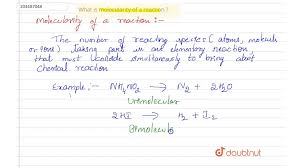 What is molecularity of a reaction?
Molecularity of a reaction :-
The number of reacting species ( atoms, molecules
or ions) taking part in an elementary reaction
that must collide simultaneously to bring about
chemical reaction
Example:- NH4NO2 → N2 + 2H2O
Unimolecular
2HI → H2 + I2
Bimolecul
doubtnut